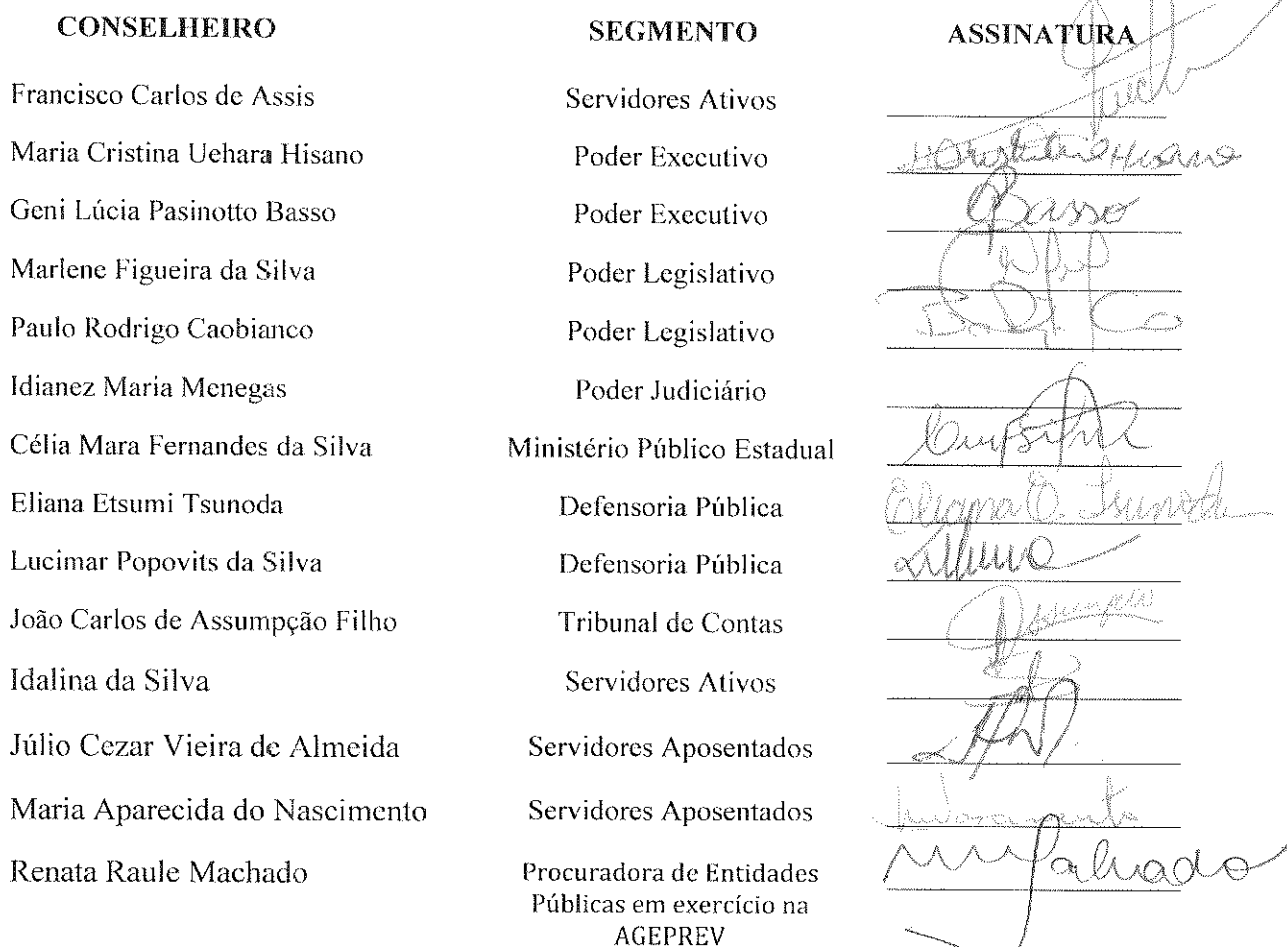 CONSELHEIRO SEGMENTO ASSINATURA
Francisco Carlos de Assis Servidores Ativos
Maria Cristina Uehara Hisano Poder Executivo
Geni Lúcia Pasinotto Basso Poder Executivo Basso
Marlene Figueira da Silva Poder Legislativo
Paulo Rodrigo Caobianco Poder Legislativo
Idianez Maria Menegas Poder Judiciário
Célia Mara Fernandes da Silva Ministério Público Estadual
Eliana Etsumi Tsunoda Defensoria Pública Eliana E. Tsunoda
Lucimar Popovits da Silva Defensoria Pública
João Carlos de Assumpção Filho Tribunal de Contas
Idalina da Silva Servidores Ativos
Júlio Cezar Vieira de Almeida Servidores Aposentados
Maria Aparecida do Nascimento Servidores Aposentados
Renata Raule Machado Procuradora de Entidades
Públicas em exercício na
AGEPREV